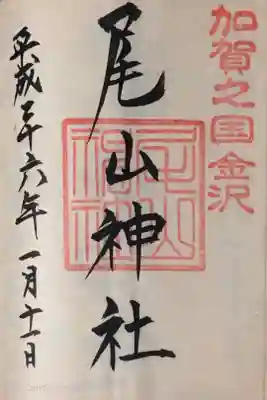 加賀之国金沢
尾山神社
平成二十六年一月十一日
尾山神社